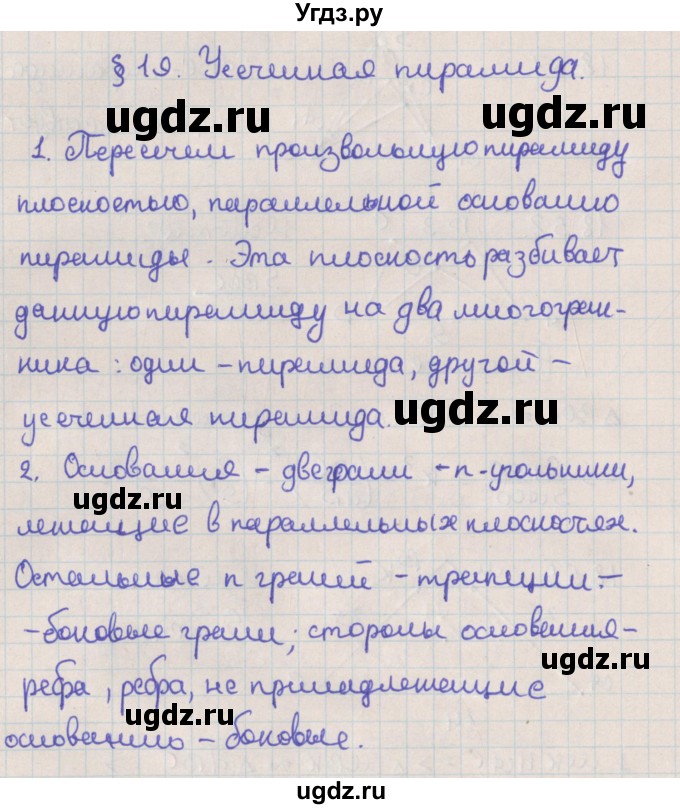 Угдз.ру
§ 19. Усеченная пирамида.
ugdz.ru
ugdz.ru
1. Пересечем произвольную пирамиду
плоскостью, параллельной основанию
пирамиды. Эта плоскость разбивает
данную пирамиду на два многогран-
ника: один - пирамида, другой -
усеченная пирамида.
ugdz.ru
2. Основания - две грани - n-угольники,
ugdz.ru
лежащие в параллельных плоскостях.
Остальные n граней - трапеции -
- боковые грани; стороны основания -
ugdz.ru
ребра, ребра, не принадлежащие
ugdz.ru
основанию - боковые.
ugdz.ru